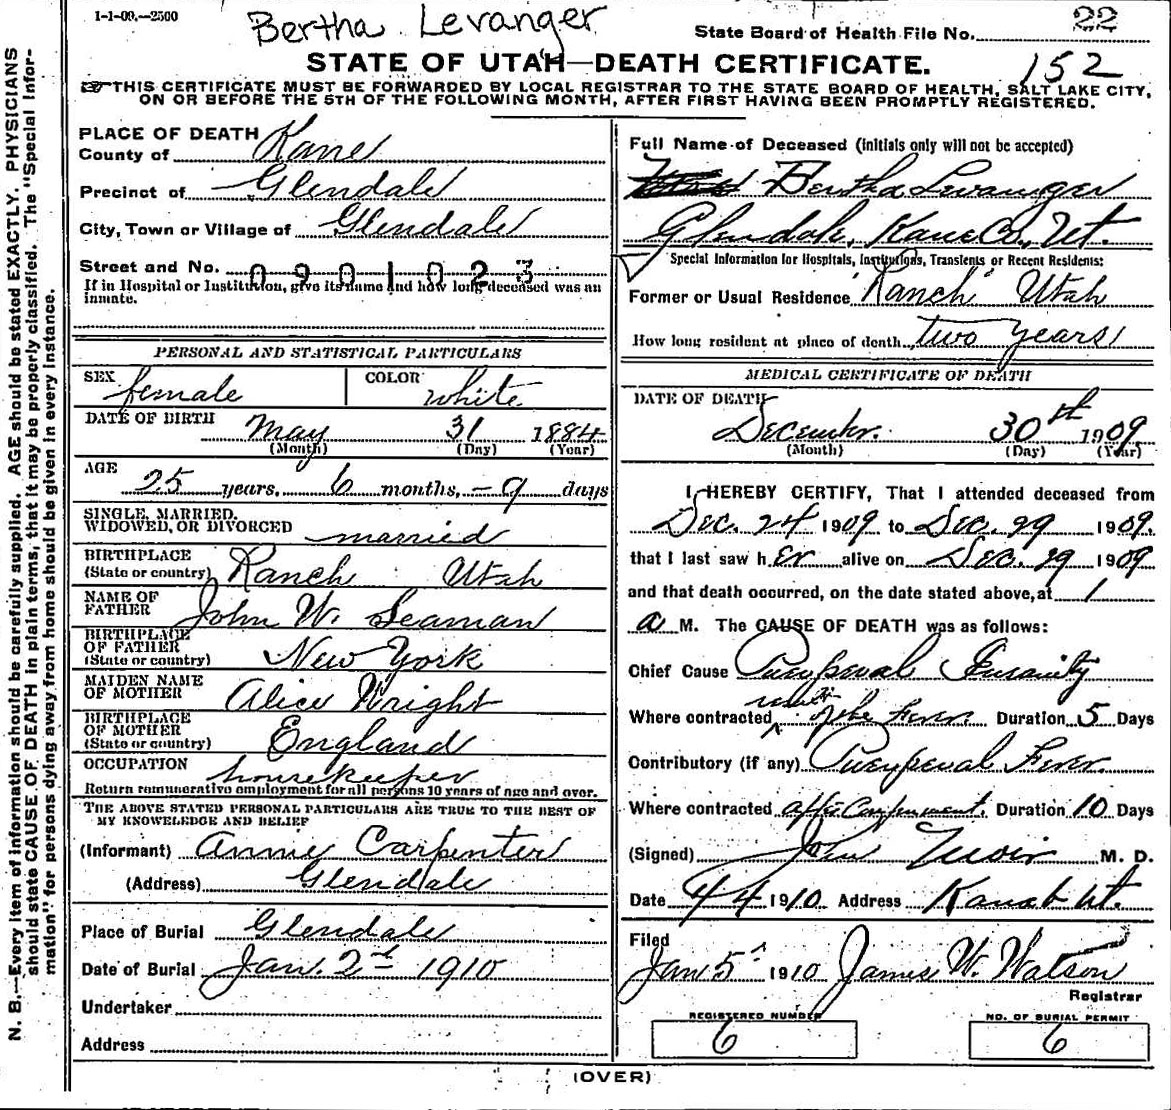 1-1-09.—2500
Bertha Levanger
State Board of Health File No. 22
STATE OF UTAH—DEATH CERTIFICATE.
152
THIS CERTIFICATE MUST BE FORWARDED BY LOCAL REGISTRAR TO THE STATE BOARD OF HEALTH, SALT LAKE CITY,
ON OR BEFORE THE 5TH OF THE FOLLOWING MONTH, AFTER FIRST HAVING BEEN PROMPTLY REGISTERED.
N. B.—Every item of information should be carefully supplied. AGE should be stated EXACTLY. PHYSICIANS
should state CAUSE OF DEATH in plain terms, that it may be properly classified. The "Special Infor-
mation" for persons dying away from home should be given in every instance.
PLACE OF DEATH
County of Kane
Precinct of Glendale
City, Town or Village of Glendale
Street and No. 0901023
If in Hospital or Institution, give its name and how long deceased was an
inmate.
PERSONAL AND STATISTICAL PARTICULARS
SEX female COLOR white
DATE OF BIRTH May 31 1884
(Month) (Day) (Year)
AGE 25 years, 6 months, - 9 days
SINGLE, MARRIED,
WIDOWED, OR DIVORCED married
BIRTHPLACE
(State or country) Ranch Utah
NAME OF
FATHER John W. Seaman
BIRTHPLACE
OF FATHER
(State or country) New York
MAIDEN NAME
OF MOTHER Alice Wright
BIRTHPLACE
OF MOTHER
(State or country) England
OCCUPATION housekeeper
Return remunerative employment for all persons 10 years of age and over.
THE ABOVE STATED PERSONAL PARTICULARS ARE TRUE TO THE BEST OF
MY KNOWLEDGE AND BELIEF
(Informant) Annie Carpenter
(Address) Glendale
Place of Burial Glendale
Date of Burial Jan. 2nd 1910
Undertaker
Address
Full Name of Deceased (initials only will not be accepted)
Bertha Levanger
Glendale, Kane Co., Ut.
Special Information for Hospitals, Institutions, Transients or Recent Residents:
Former or Usual Residence Ranch Utah
How long resident at place of death two years
MEDICAL CERTIFICATE OF DEATH
DATE OF DEATH
December. 30th 1909
(Month) (Day) (Year)
I HEREBY CERTIFY, That I attended deceased from
Dec. 24 1909 to Dec. 29 1909.
that I last saw her alive on Dec. 29 1909
and that death occurred, on the date stated above, at 1
a M. The CAUSE OF DEATH was as follows:
Chief Cause Puerperal Insanity
Where contracted Fever Duration 5 Days
Contributory (if any) Puerperal Fever.
Where contracted after Confinement. Duration 10 Days
(Signed) John M. D.
Date 1910 Address Kanab Ut.
Filed
Jan 5 1910 James W. Watson
Registrar
REGISTERED NUMBER
6
NO. OF BURIAL PERMIT
6
(OVER)